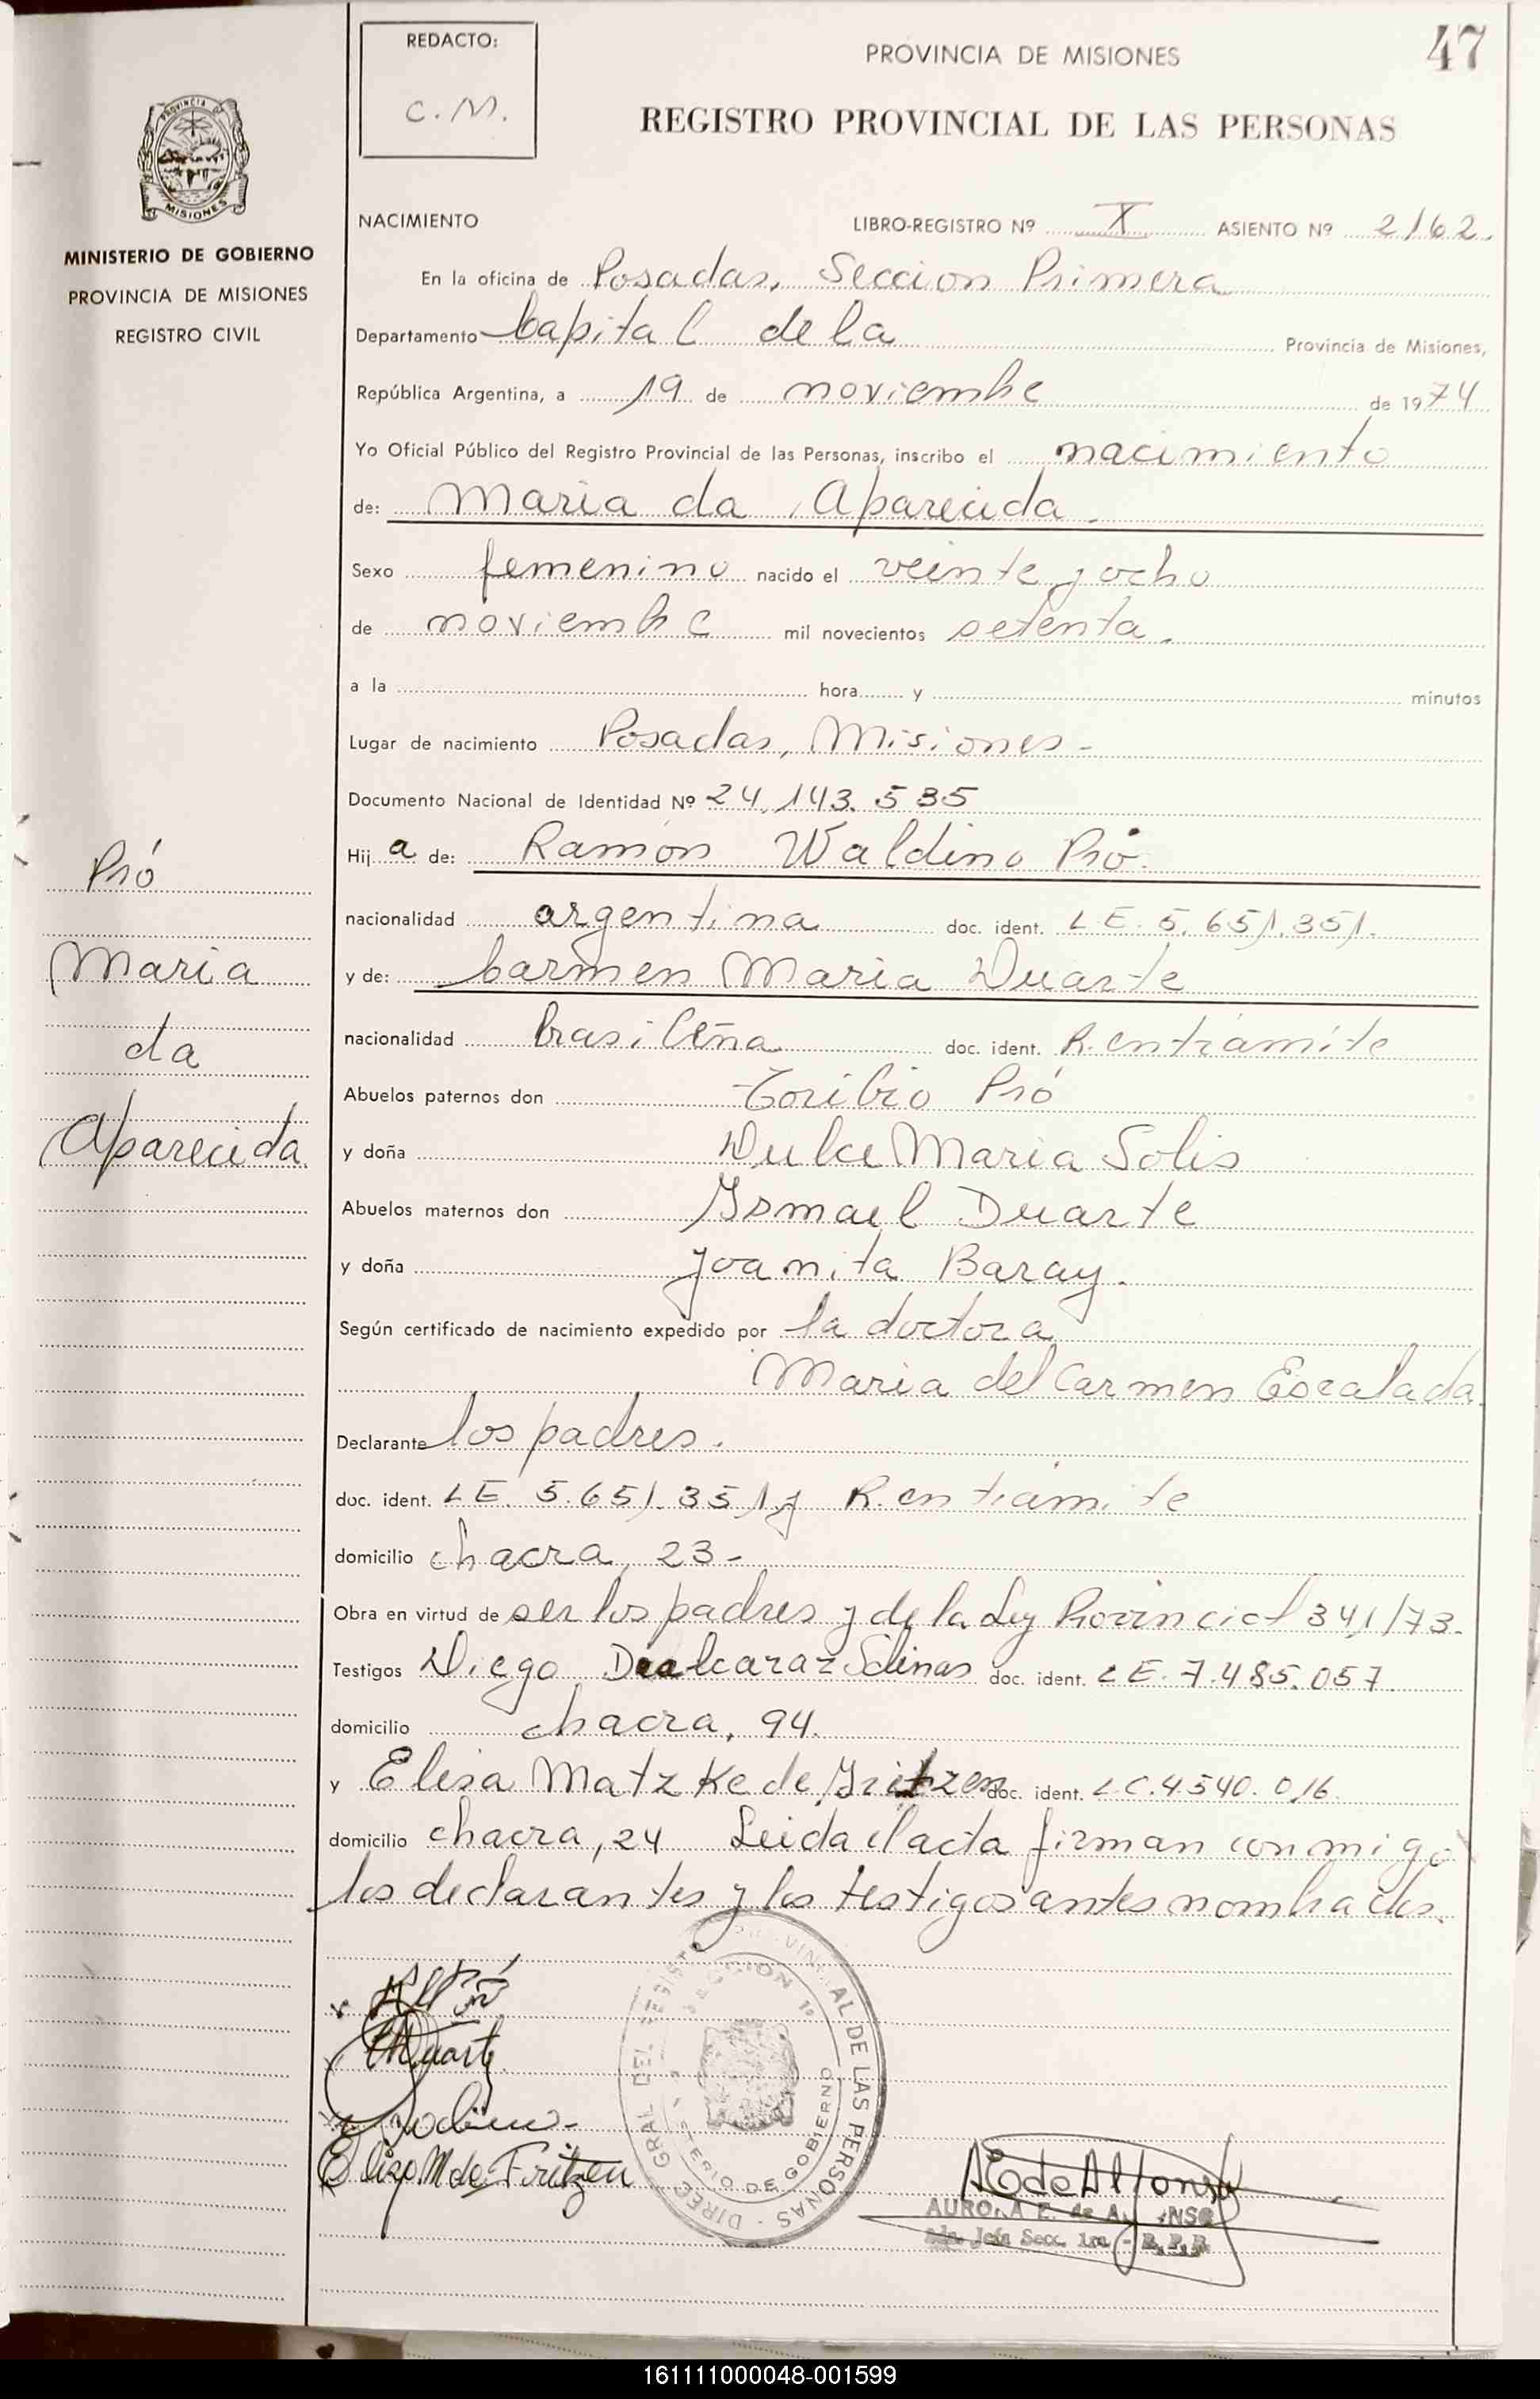 REDACTO:
C. M.
PROVINCIA DE MISIONES
47
REGISTRO PROVINCIAL DE LAS PERSONAS
PROVINCIA DE
MISIONES
MINISTERIO DE GOBIERNO
PROVINCIA DE MISIONES
REGISTRO CIVIL
NACIMIENTO
LIBRO-REGISTRO Nº X ASIENTO Nº 2162.
En la oficina de Posadas, Seccion Primera
Departamento Capital de la Provincia de Misiones,
República Argentina, a 19 de noviembre de 1974
Yo Oficial Público del Registro Provincial de las Personas, inscribo el nacimiento
de: Maria da Aparecida.
Sexo femenino nacido el veinte y ocho
de noviembre mil novecientos setenta.
a la hora y minutos
Lugar de nacimiento Posadas, Misiones-
Documento Nacional de Identidad Nº 24.143.535
Hij a de: Ramón Waldino Pió.
nacionalidad argentina doc. ident. L E. 5.651.351.
y de: Carmen Maria Duarte
nacionalidad brasileña doc. ident. R. en trámite
Abuelos paternos don Toribio Pió
y doña Dulce Maria Solis
Abuelos maternos don Ismael Duarte
y doña Joanita Baray.
Según certificado de nacimiento expedido por la doctora
Maria del Carmen Escalada
Declarante los padres.
doc. ident. L E. 5.651.351 y R. en trámite
domicilio chacra, 23-
Obra en virtud de ser los padres y de la Ley Provincial 341/73.
Testigos Diego Dealcaraz Salinas doc. ident. L E. 7.485.057
domicilio chacra, 94.
y Elisa Matzke de Fritzen doc. ident. L.C. 4540.016
domicilio chacra, 24 Leida el acta firman conmigo
los declarantes y los testigos antes nombrados.
Pió
Maria
da
Aparecida
Duarte
Elisa M de Fritzen
DIREC. GRAL DEL REGIST. PROVINCIAL DE LAS PERSONAS
SECCION 1º
MINISTERIO DE GOBIERNO
AE de Alfonso
AURORA E. de ALFONSO
Jefa Secc. 1ra - R.P.P.
161111000048-001599